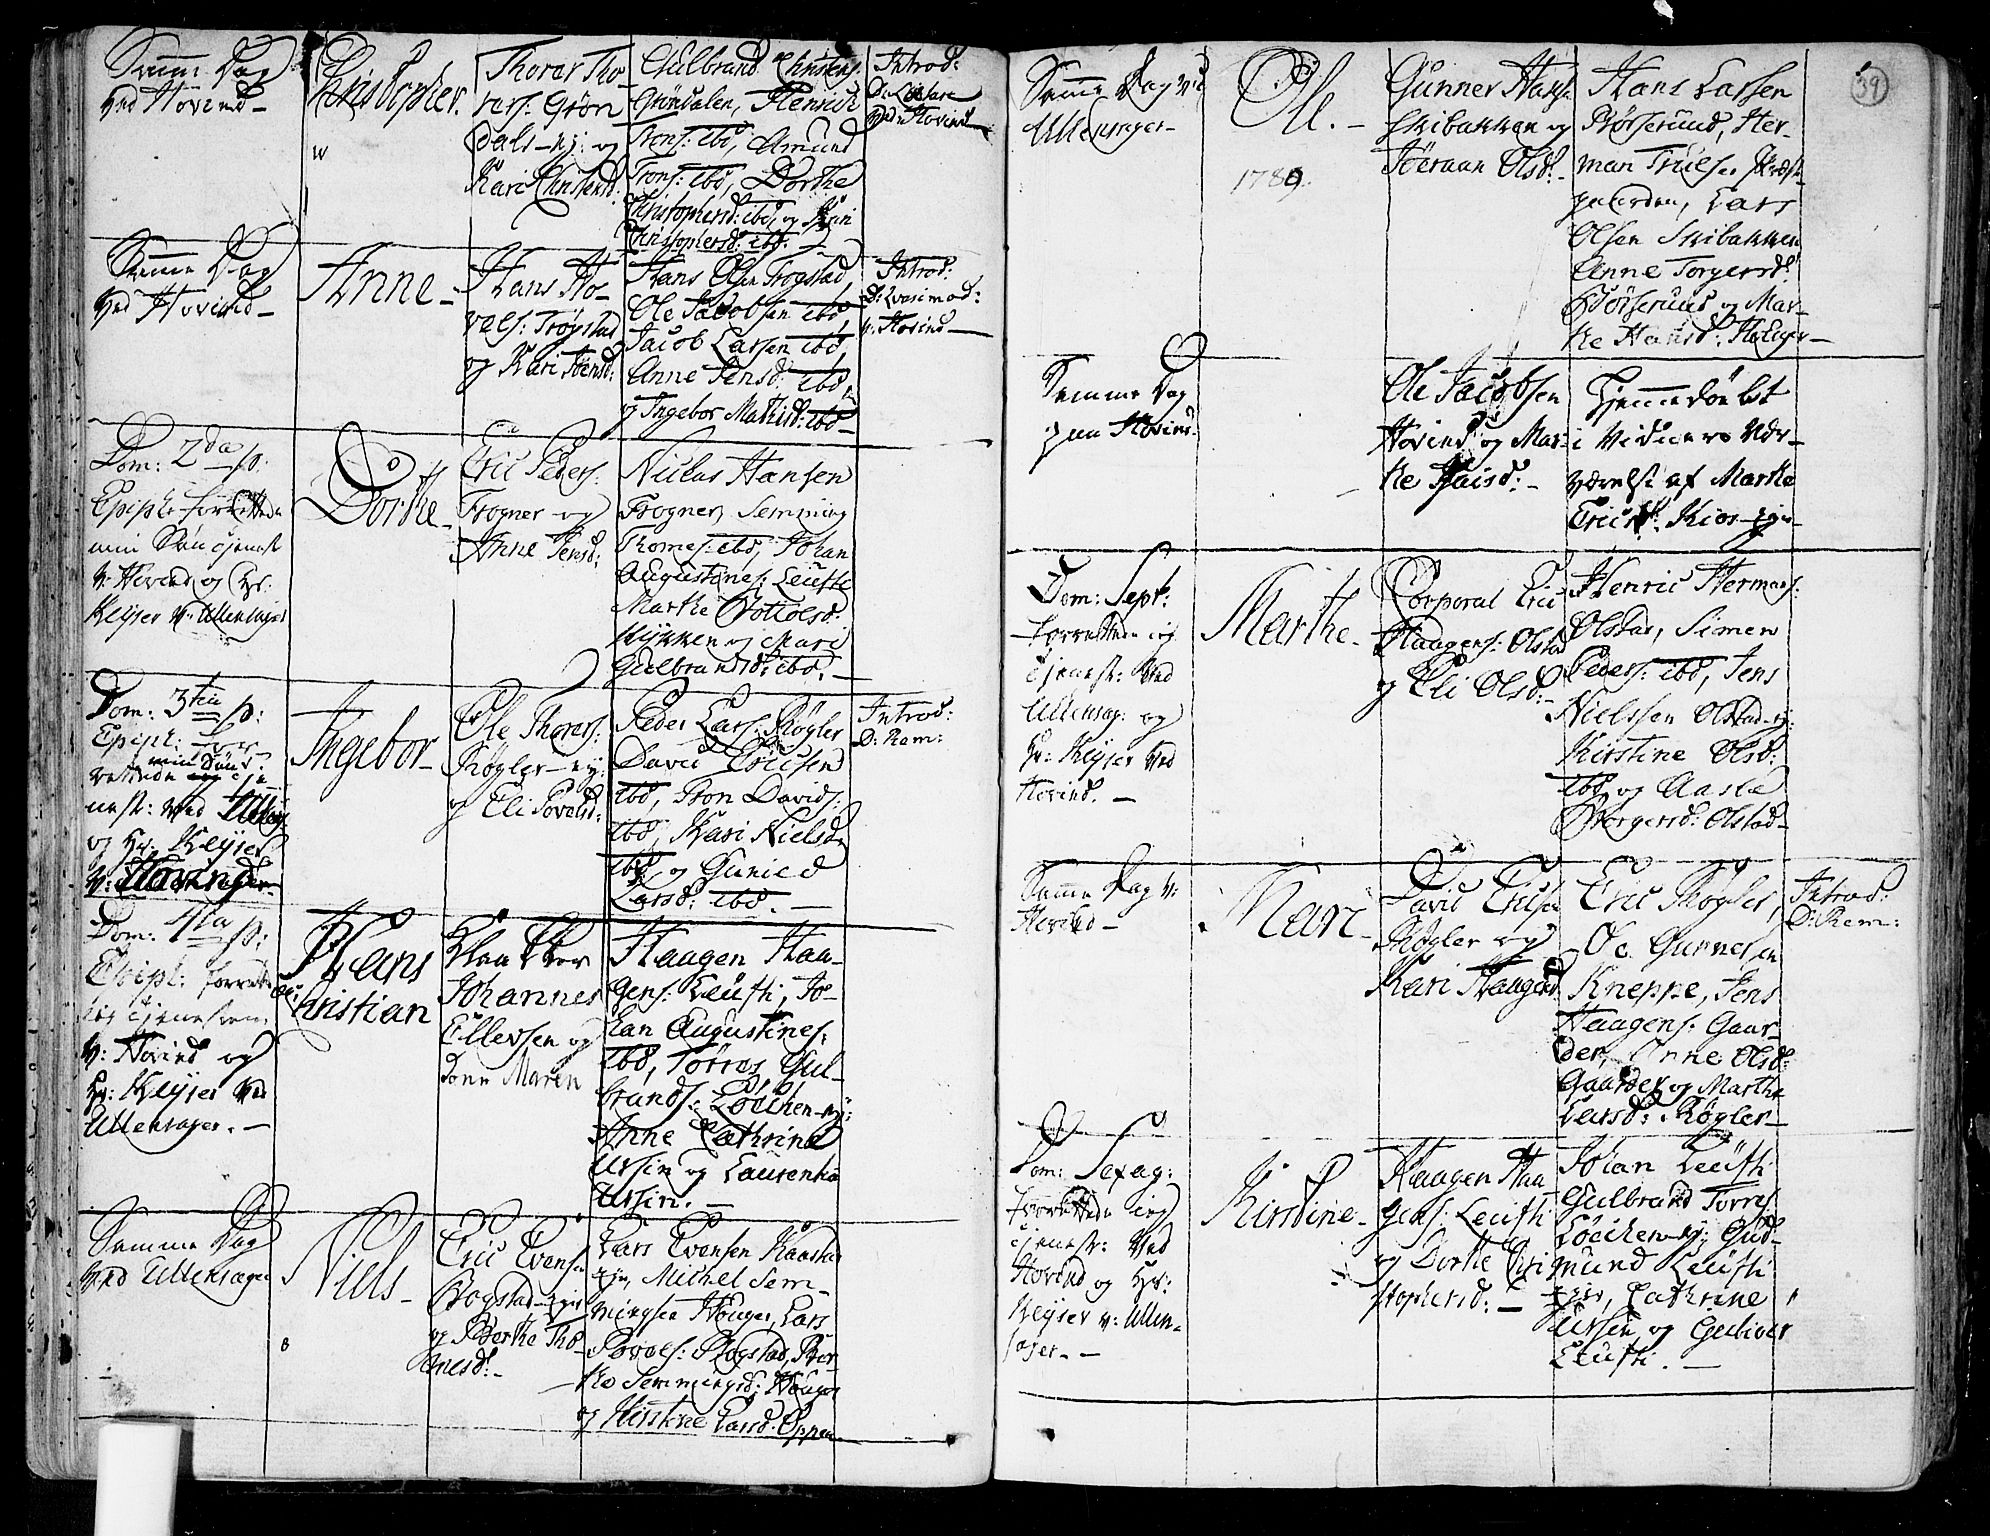 Samme Dag
ved Hovind –
Christopher.
Thorer Tho-
rers: Grön
dals – ej: og
Kari Christensd:
Gulbrand Christens:
Gröndalen, Henrich
Trons: ibd, Amund
Trons: ibd, Dorthe
Christophersd: ibd, og
Christophersd: ibd. –
Introd:
ved Hovind
Samme Dag
ved Hovind –
Anne –
Hans Po-
vels: Trögstad
og Kari Jensd:
Hans Olsen Trogstad,
Ole Jacobsen ibd,
Jacob Larsen ibd,
Anne Jensd: ibd,
og Ingebor Mathisd: ibd –
Introd:
D: Qvasimod:
v: Hovind –
Dom: 2da p:
Epiph: forrettede
min Sön tjenest
v: Hovind og Hr.
Keyser v: Ullensager
Dorthe –
Eric Peders:
Frogner og
Anne Jensd:
Niclas Hansen
Frogner, Semming
Thomes: ibd, Johan
Augustines: Leufti
Marthe
og Mari
Gulbrandsd: ibd. –
Dom: 3tia p:
Epiph: for-
rettede min Sön tje
nest: ved
og Hr: Keyser
v: Hovind
Ingebor –
Ole Thorers:
Rögler – ej:
og Eli Povelsd:
Peder Lars: Rögler
David Ericsen
ibd, Tron Davids:
ibd, Kari Nielsd
ibd, og Gunild
Larsd: ibd. –
Introd:
D: Rem:
Dom: 4ta p:
Epiph: forrettede
jeg tjenesten
v: Hovind og
Hr: Keyser ved
Ullensager. –
Hans
Christian
Johannes
Ellevsen og
Kone Maren
Haagen Haa-
gens: Leufti, Jo-
han Augustines:
ibd, Torres Gul-
brands: Löcken – ej:
Anne Cathrine
Ursin og Laurentia
Ursin. –
Samme Dag
ved Ullensager
Niels –
Eric Evensen
Bogstad – ejer
og Berthe Tho-
mesd: –
Lars Evensen Kaasta
ejer, Michel Sem-
mingsen Houger, Lars
Povels: Bogstad, Ber-
the Semmingsd: Houger
og Kirstine Larsd: Oppen
39
Samme Dag ved
Ullensager –
Ole. –
1789.
Gunner Hans:
Skibakken og
Jöeraan Olsd: –
Hans Larsen
Börserud, Her-
man Truels: Præste-
gaarden, Lars
Olsen Skibakken
Anne Torgersd:
Börserud og Mar-
the Hansd: Houger –
Samme Dag
paa Hovind
Ole Jacobsen
Hovind og Mar-
the Paisd: –
Hjemmedöbt
værelse af Marthe
Ericsd:
Dom: Sept:
forrettede jeg
Tjenest: ved
Ullensag: og
Hr: Keyser ved
Hovind. –
Marthe –
Corporal Eric
Haagens: Olstad
og Eli Olsd: –
Henric Hermans:
Olstad, Simen
Peders: ibd, Jens
Nielssen Olstad – ej:
Kirstine Olsd:
ibd, og Aasta
Börgersd: Olstad –
Samme Dag v:
Hovind –
Mari –
David Ericsen
Rögler og
Kari Haagensd
Eric Rögler,
Ole Gunnesen
Kneppe, Jens
Haagens: Gaar-
der, Anne Olsd:
Gaarder og Marthe
Larsd: Rögler –
Introd:
D: Rem:
Dom: Sexag:
forrettede jeg
tjenest: ved
Hovind og Hr:
Keyser v: Ullen-
sager. –
Kirstine –
Haagen Haa
gens: Leufti
og Dorthe Chri
stophersd: –
Johan Leufti
Gulbrand Torres
Löcken – ej: Gud-
mund Leufti
ejer, Cathrine
Ursin og Guliver
Leufti. –